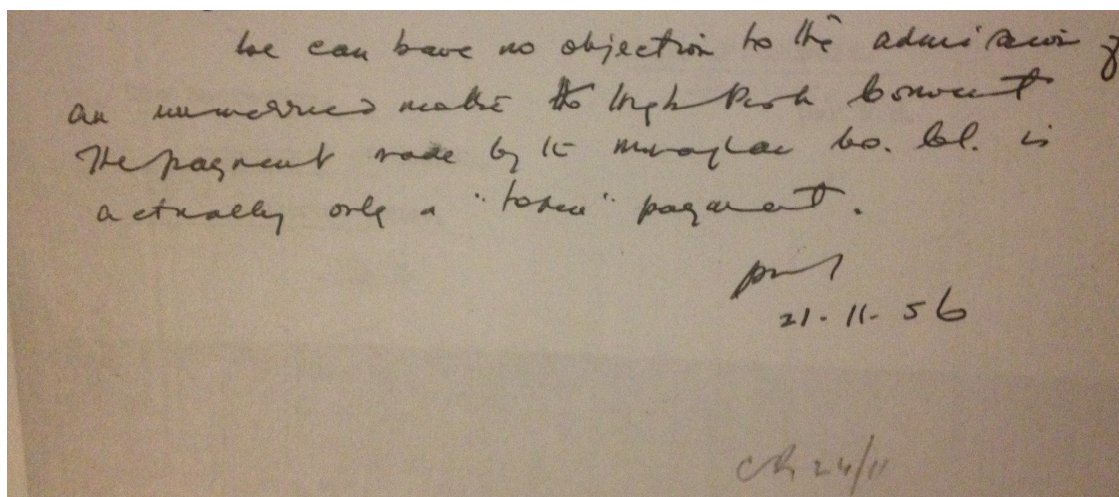 We can have no objection to the admission of
an unmarried mother to High Park Convent
The payment made by the Monaghan Co. Cl. is
actually only a "token" payment.
21-11-56
24/11